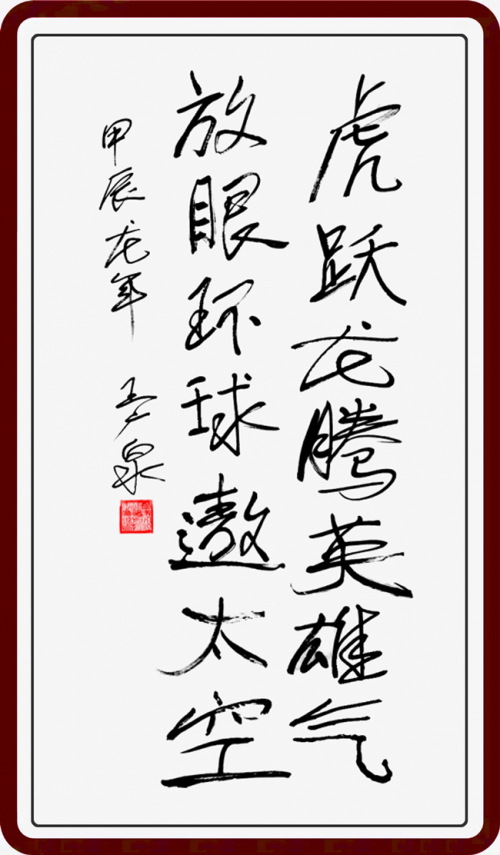 虎跃龙腾英雄气
放眼环球遨太空
甲辰龙年
泉